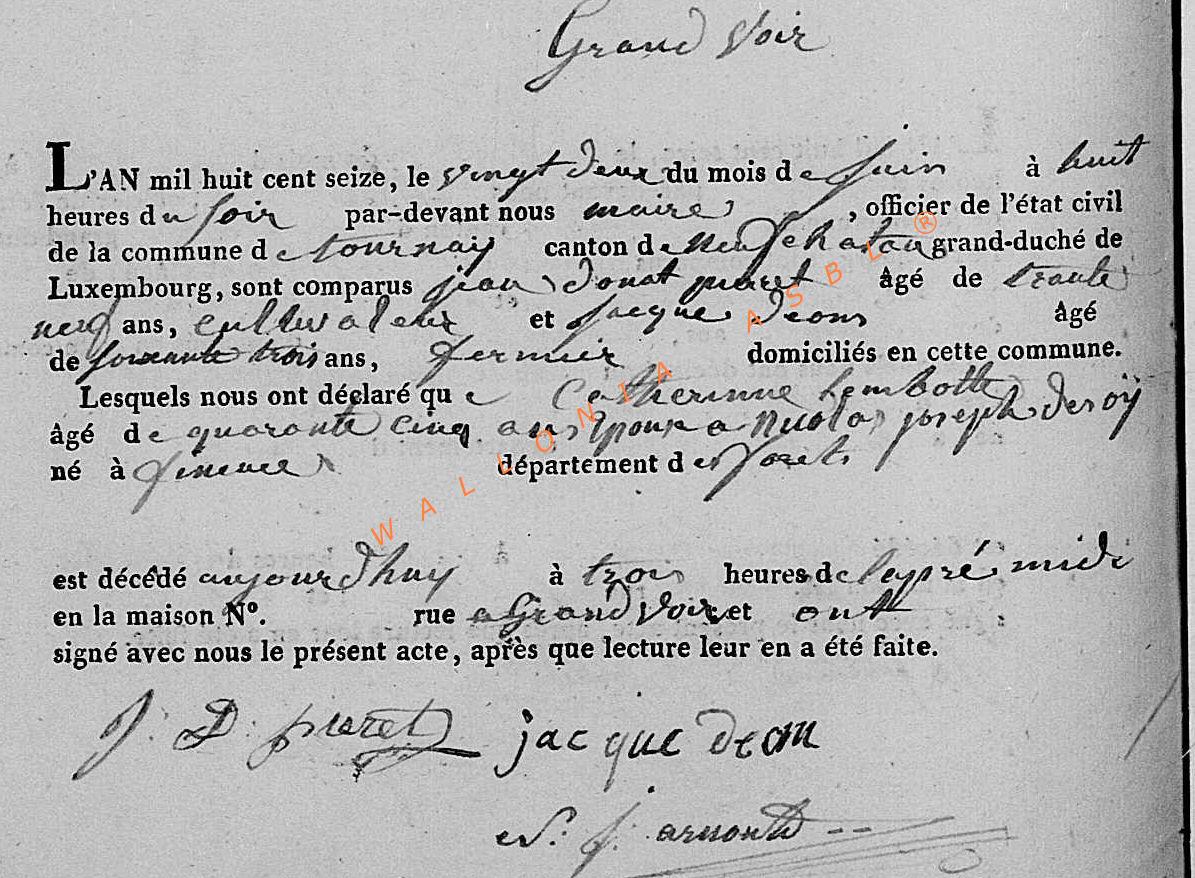 Grand Voir
L'AN mil huit cent seize, le vingt deux du mois de juin à huit
heures du soir par-devant nous maire, officier de l'état civil
de la commune de tournay canton de neufchatau grand-duché de
Luxembourg, sont comparus jean donat pieret âgé de trante
neuf ans, cultivateur et jacque deom âgé
de soixante trois ans, fermier domiciliés en cette commune.
Lesquels nous ont déclaré que Catherinne Lembotte
âgé de quarante cinq ans epouse a nicolas joseph deroÿ
né à département des forets
est décédé aujourdhuy à trois heures de lapré midi
en la maison N°. rue a Grand Voir et ont
signé avec nous le présent acte, après que lecture leur en a été faite.
J: D: pieret jacque deom
N: j: arnould
WALLONIA ASBL ®